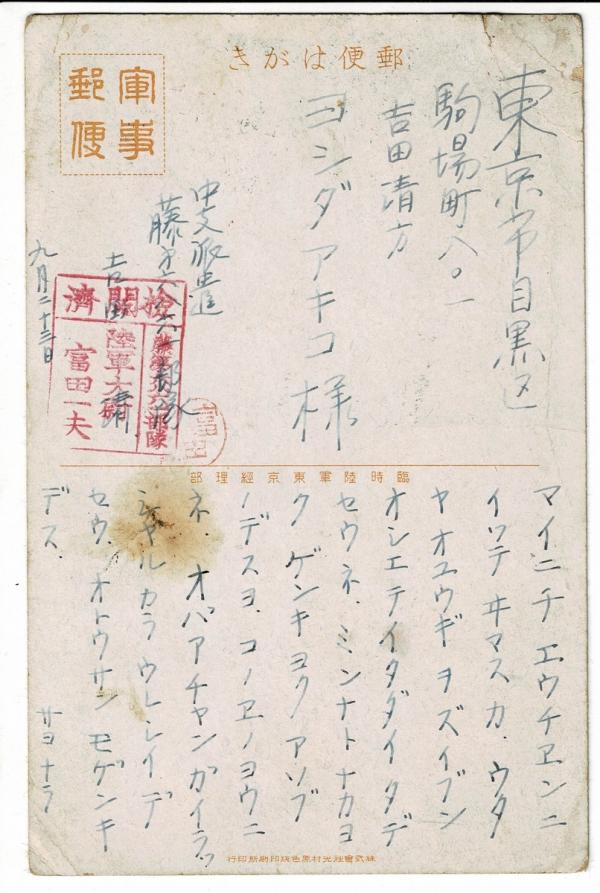 郵便はがき
軍事
郵便
東京市目黒区
駒場町八〇一
吉田清方
ヨシダアキコ様
中支派遣
部隊
吉田清
九月二十三日
検閲済
部隊
陸軍大尉
富田一夫
富田
臨時陸軍東京經理部
マイニチ エウチヱンニ
イツテ ヰマスカ. ウタ
ヤオユウギ ヲズイブン
オシエテイタダイタデ
セウネ. ミンナト ナカヨ
ク ゲンキヨク アソブ
ノデスヨ. コノヱノヨウニ
ネ. オバアチヤンガイラツ
シヤルカラ ウレシイデ
セウ. オトウサン モゲンキ
デス. サヨナラ
株式會社光村原色版印刷所印行